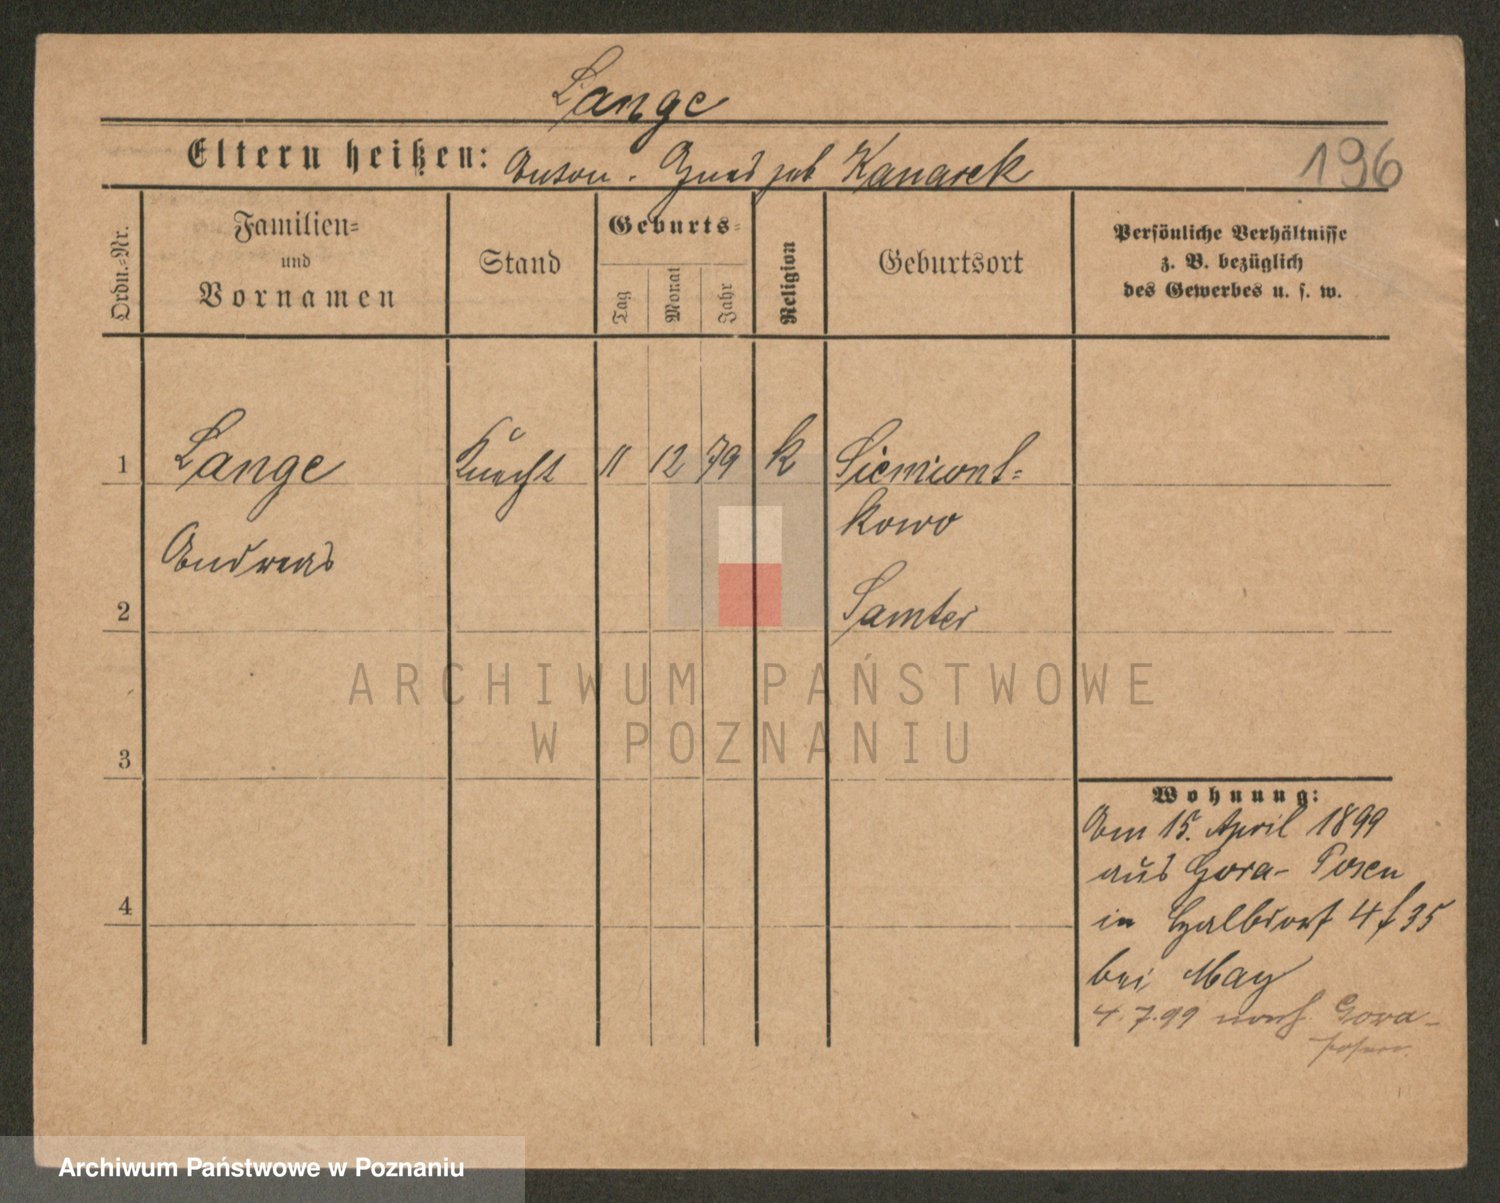 Lange
Eltern heißen: Anton. Agnes geb Kanarek
196
Ordn.-Nr.
Familien-
und
Vornamen
Stand
Geburts-
Tag
Monat
Jahr
Religion
Geburtsort
Persönliche Verhältnisse
z. B. bezüglich
des Gewerbes u. s. w.
1 Lange Knecht 11 12 79 k Siemiont-
kowo
Andreas
2 Samter
3
4
Wohnung:
Am 15. April 1899
aus Gora- Posen
in 4 f 35
bei May
4.7.99 nach Gora-
Posen.
ARCHIWUM PAŃSTWOWE
W POZNANIU
Archiwum Państwowe w Poznaniu